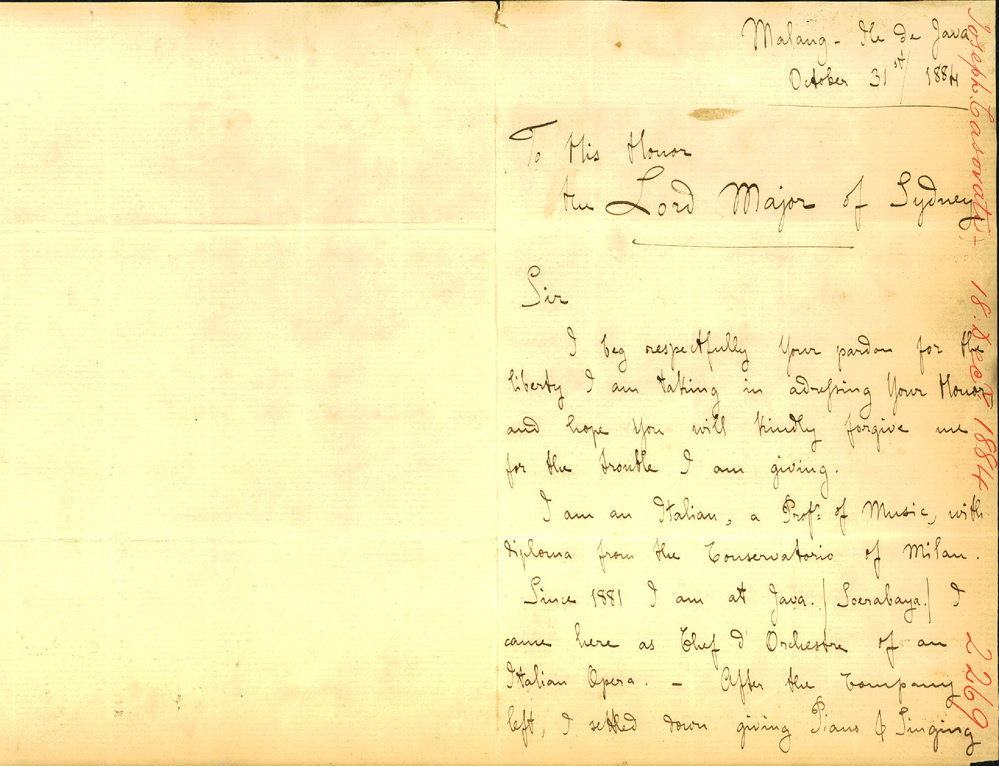 Malang - Ile de Java
October 31st/ 1884
To His Honor
the Lord Major of Sydney
Sir
I beg respectfully Your pardon for the
liberty I am taking in adressing Your Honor
and hope You will kindly forgive me
for the trouble I am giving.
I am an Italian, a Profr of Music, with
diploma from the Conservatorio of Milan.
Since 1881 I am at Java. / Soerabaya. / I
came here as Chef d'Orchestre of an
Italian Opera. - After the Company
left, I settled down giving Piano & Singing
Joseph Casovati - 18. Decr 1884
2269